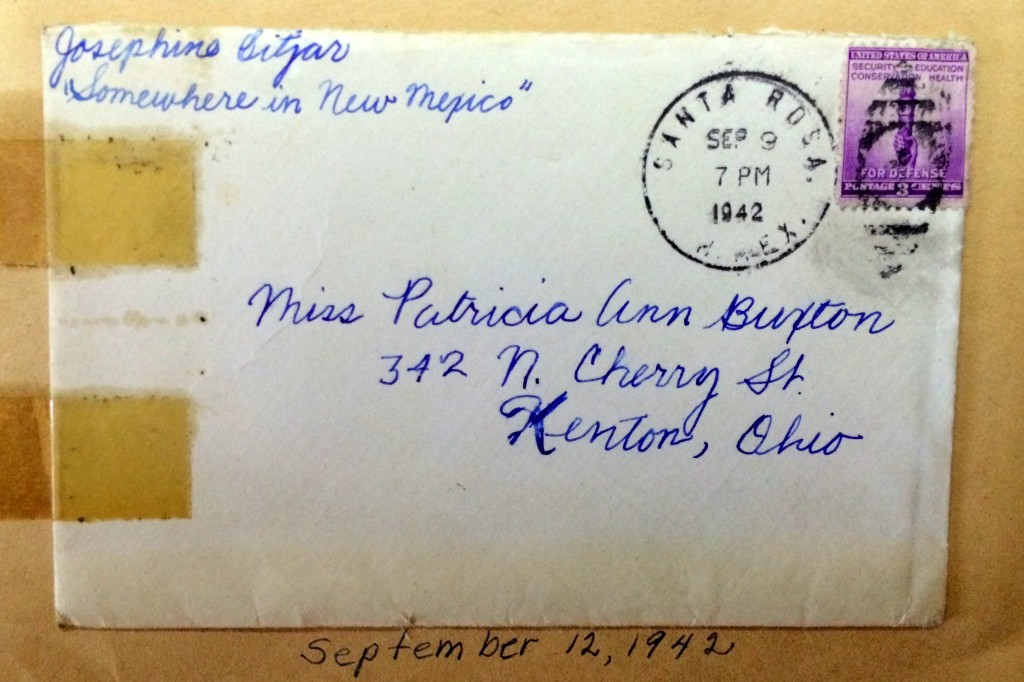 Josephine Bitzar
"Somewhere in New Mexico"
SANTA ROSA.
SEP 9
7 PM
1942
N. MEX.
UNITED STATES OF AMERICA
SECURITY EDUCATION
CONSERVATION HEALTH
FOR DEFENSE
POSTAGE 3 CENTS
Miss Patricia Ann Buxton
342 N. Cherry St.
Kenton, Ohio
September 12, 1942